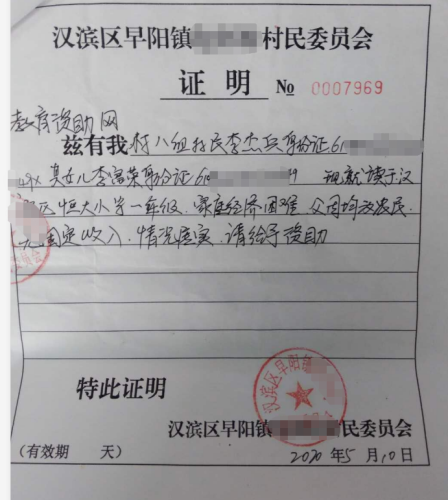 汉滨区早阳镇 村民委员会
证明 № 0007969
教育资助网
兹有我村八组村民李杰兵身份证6
49X 其女儿李富荣身份证6 9 现就读于汉
区恒大小学一年级.家庭经济困难.父母均为农民.
无固定收入.情况属实.请给予资助
特此证明
汉滨区早阳镇
汉滨区早阳镇 民委员会
(有效期 天) 2020年5月10日